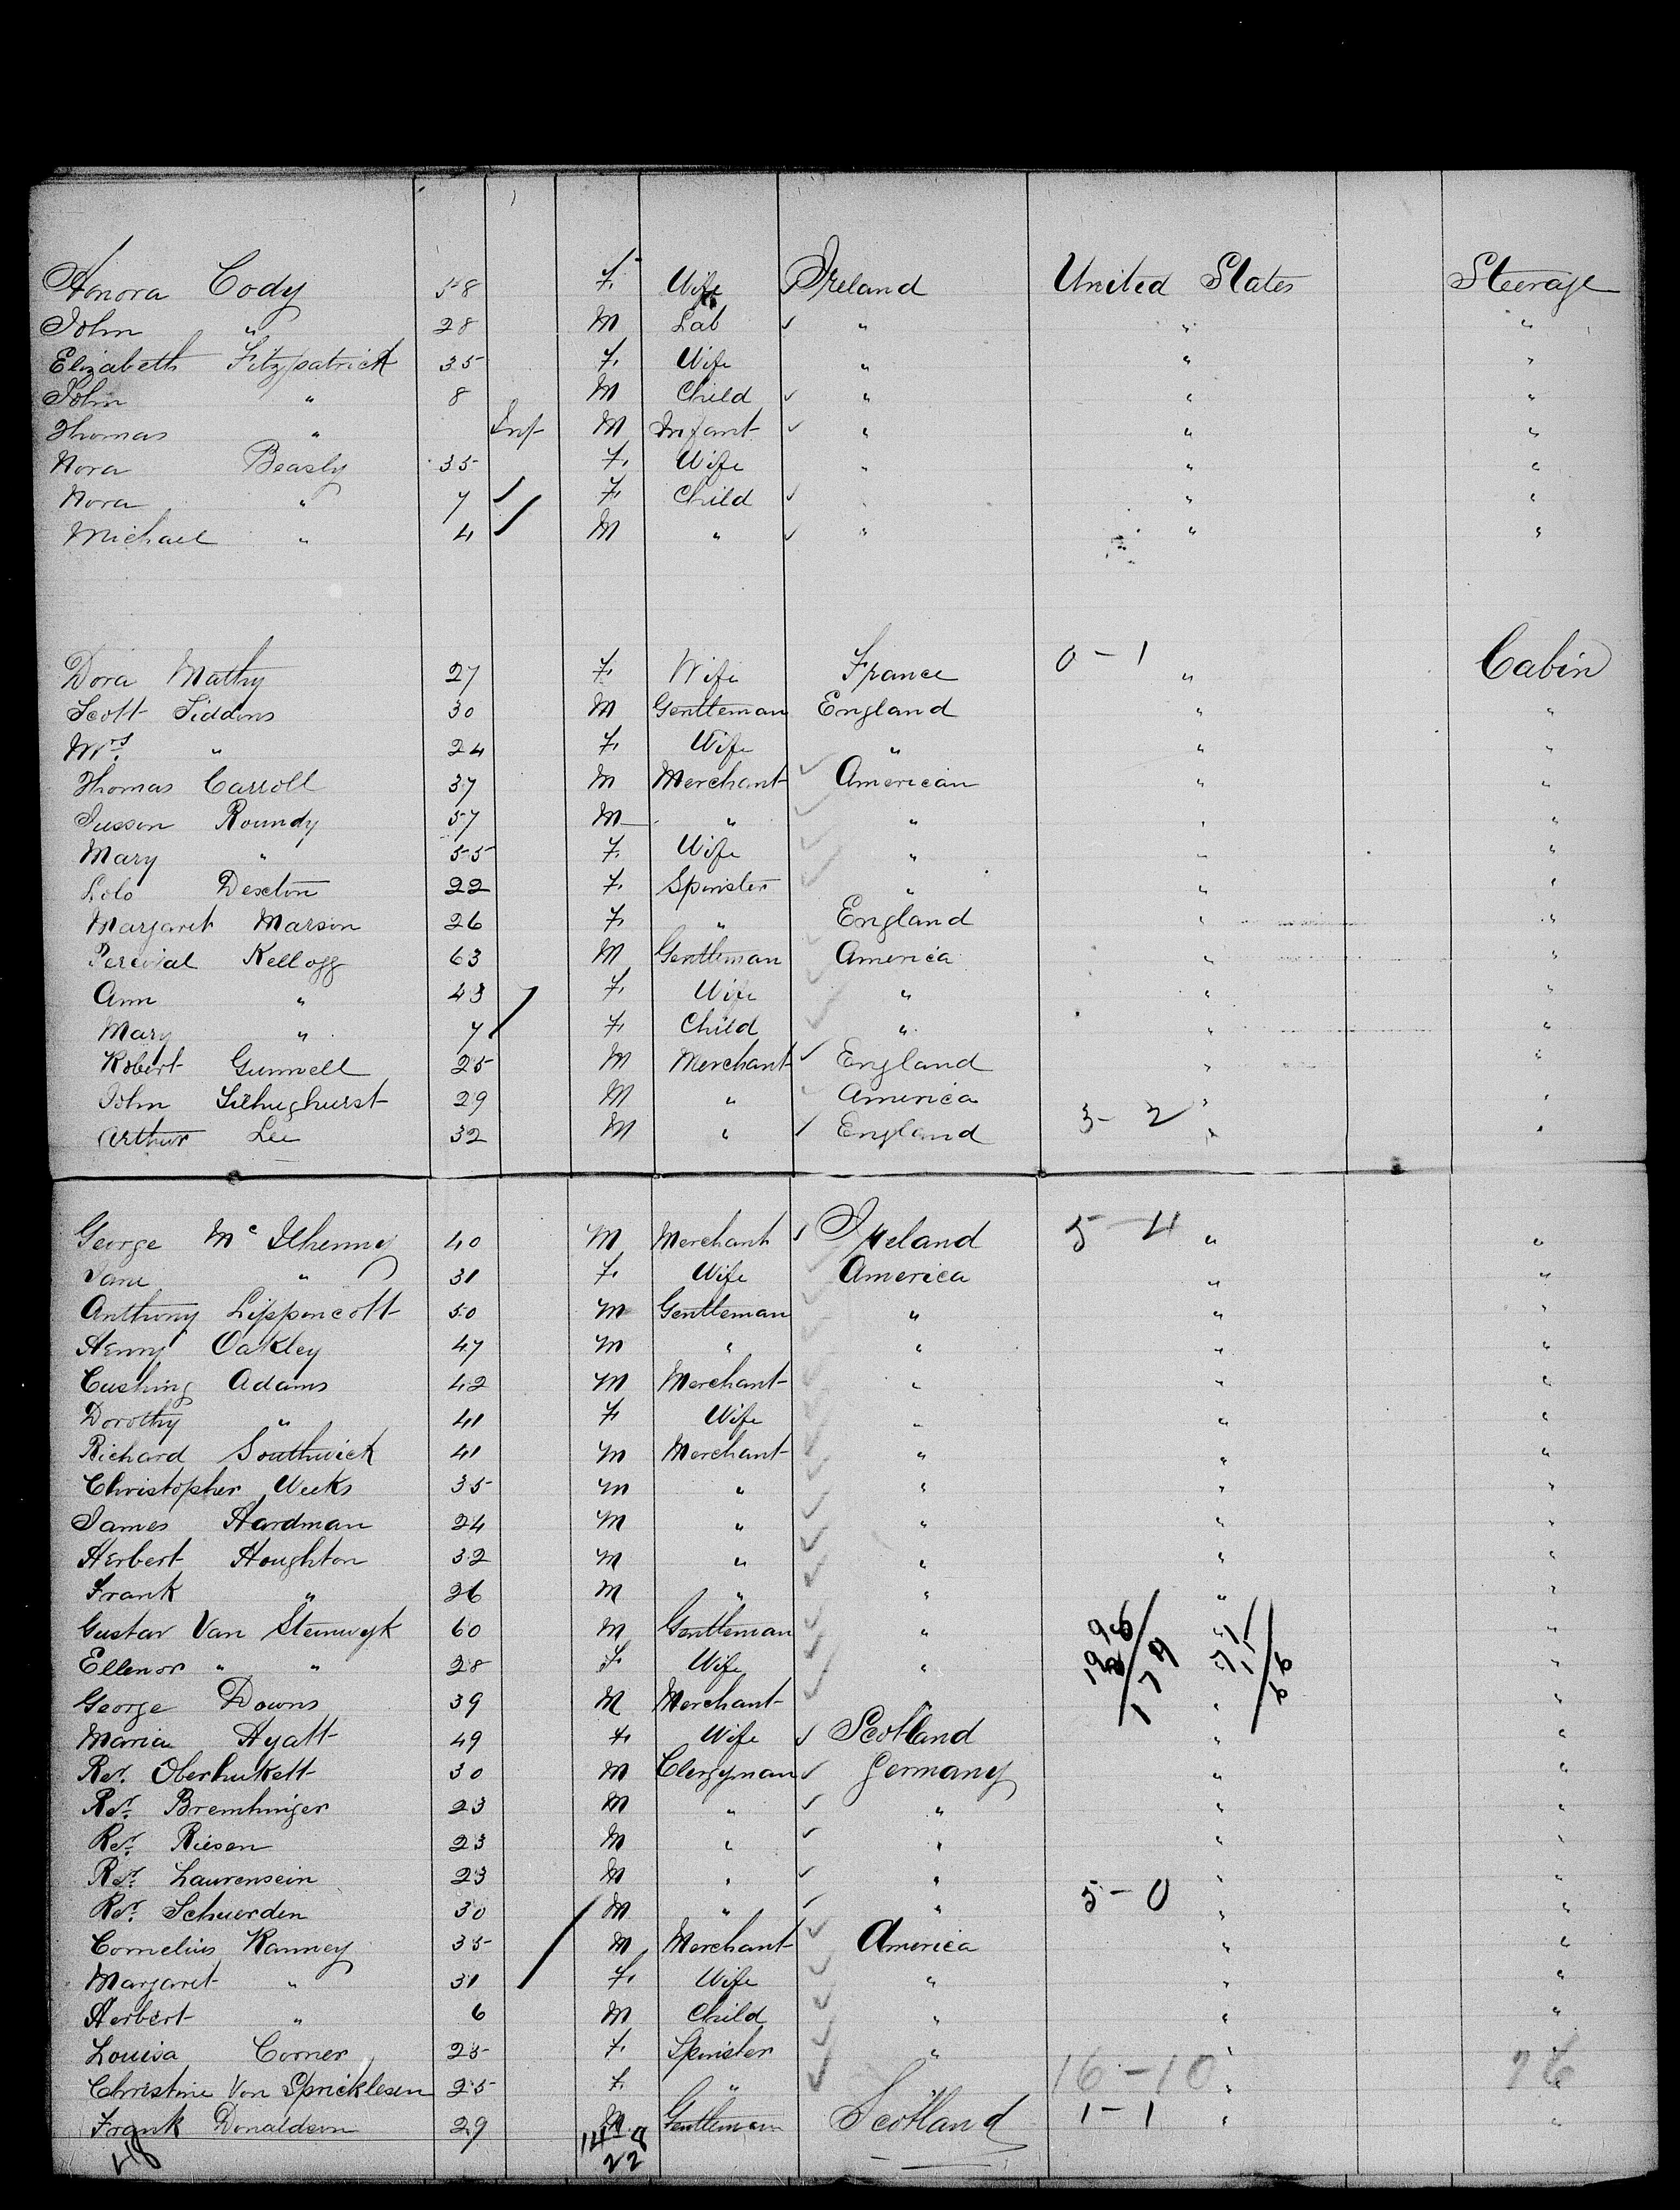 Honora Cody 58 F. Wife Ireland United States Steerage
John " 28 M Lab " " "
Elizabeth Fitzpatrick 35 F. Wife " " "
John " 8 M Child " " "
Thomas " Inf M Infant " " "
Nora Beasly 35 F. Wife " " "
Nora " 7 F. Child " " "
Michael " 4 M " " " "
Dora Mathy 27 F. Wife France 0-1 " Cabin
Scott Siddons 30 M Gentleman England " "
Mrs. " 24 F. Wife " " "
Thomas Carroll 37 M Merchant American " "
Roundy 57 M " " " "
Mary " 55 F. Wife " " "
Dexton 22 F. Spinster " " "
Margaret Marson 26 F. " England " "
Percival Kellogg 63 M Gentleman America " "
Ann " 43 F. Wife " " "
Mary " 7 F. Child " " "
Robert Gunnell 25 M Merchant England " "
John 29 M " America " "
Arthur Lee 32 M " England 3-2 " "
George Mc Ilhenny 40 M Merchant Ireland 5-4 " "
Jane " 31 F. Wife America " "
Anthony Lippencott 50 M Gentleman " " "
Henry Oakley 47 M " " " "
Cushing Adams 42 M Merchant " " "
Dorothy " 41 F Wife " " "
Richard Southwick 41 M Merchant " " "
Christopher Weeks 35 M " " " "
James Hardman 24 M " " " "
Herbert Houghton 32 M " " " "
Frank " 26 M " " " "
Gustav Van Steinwyk 60 M Gentleman " " "
Ellenor " " 28 F. Wife " " "
George Downs 39 M Merchant " "
Maria Hyatt 49 F. Wife Scotland " "
Rev. Oberhukett 30 M Clergyman Germany " "
Rev. Bremhinger 23 M " " " "
Rev. Riesen 23 M " " " "
Rev. Laurensein 23 M " " " "
Rev. Schuerden 30 M " " 5-0 " "
Cornelius Ranney 35 M Merchant America " "
Margaret " 31 F. Wife " " "
Herbert " 6 M Child " " "
Louisa Corner 25 F. Spinster " " "
Christine Von Spricklesen 25 F. " 16-10 " 76
Frank Donaldson 29 M Gentleman Scotland 1-1 " "
48 14 8
22